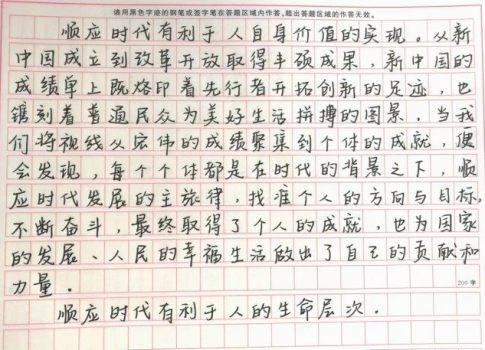 请用黑色字迹的钢笔或签字笔在答题区域内作答,超出答题区域的作答无效。
顺应时代有利于人自身价值的实现。从新
中国成立到改革开放取得丰硕成果,新中国的
成绩单上既烙印着先行者开拓创新的足迹,也
镌刻着普通民众为美好生活拼搏的图景。当我
们将视线从宏伟的成绩聚集到个体的成就,便
会发现,每个个体都是在时代的背景之下,顺
应时代发展的主旋律,找准个人的方向与目标,
不断奋斗,最终取得了个人的成就,也为国家
的发展、人民的幸福生活做出了自己的贡献和
力量。
200字
顺应时代有利于人的生命层次。